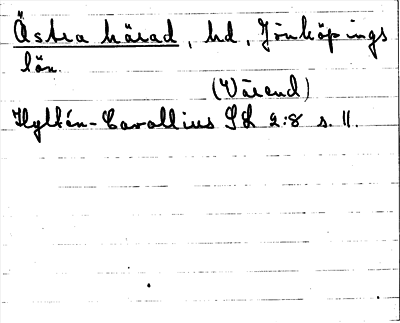 Östra härad, hd, Jönköpings
län.
(Värend)
Hyltén-Cavallius SL 2:8 s. 11.